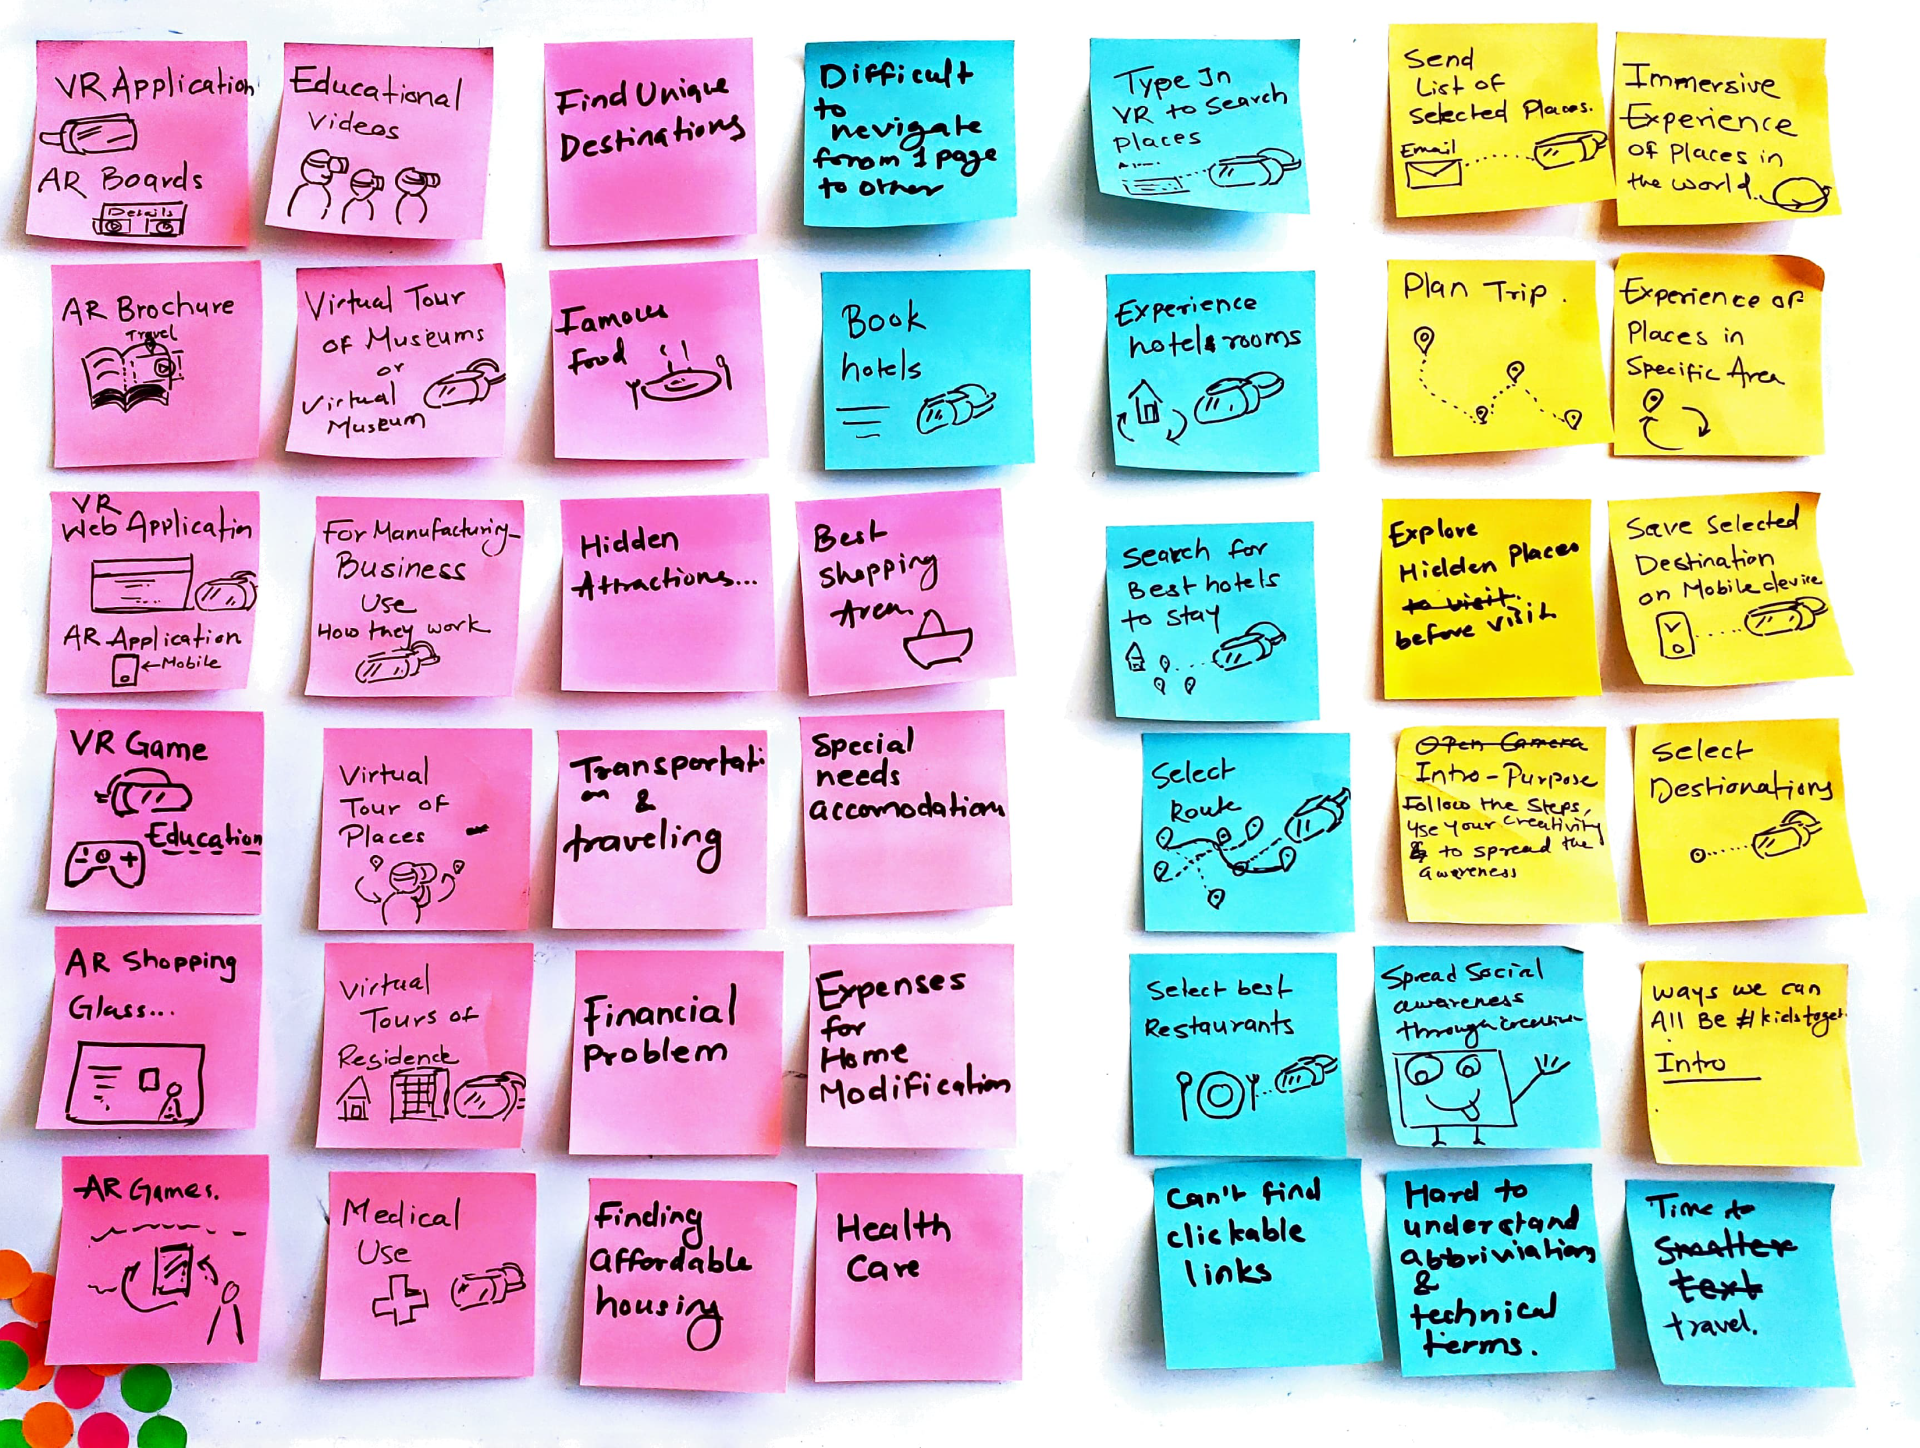 VR Application
AR Boards
Details
Educational
Videos
Find Unique
Destinations
Difficult
to
nevigate
forom 1 page
to other
Type In
VR to Search
places
Send
List of
Selected Places.
Email
Immersive
Experience
of Places in
the world.
AR Brochure
Travel
Virtual Tour
of Museums
or
Virtual
Museum
Famous
food
Book
hotels
Experience
hotel & rooms
Plan Trip.
Experience of
Places in
Specific Area
VR
Web Application
AR Application
←Mobile
For Manufacturing-
Business
Use
How they work
Hidden
Attractions...
Best
Shopping
Area
Search for
Best hotels
to stay
Explore
Hidden Places
to visit.
before visit
Save Selected
Destination
on Mobile device
VR Game
Education
Virtual
Tour of
Places
Transportati
on &
traveling
Special
needs
accomodation
Select
Route
Open Camera
Intro-Purpose
Follow the Steps,
use your Creativity
& to spread the
awareness
Select
Destionations
AR Shopping
Glass...
Virtual
Tours of
Residence
Financial
Problem
Expenses
for
Home
Modification
Select best
Restaurants
Spread Social
awareness
through creative
ways we can
All Be # kids toget.
Intro
AR Games.
Medical
Use
Finding
affordable
housing
Health
Care
Can't find
clickable
links
Hard to
understand
abbriviations
&
technical
terms.
Time to
Smaller
text
travel.